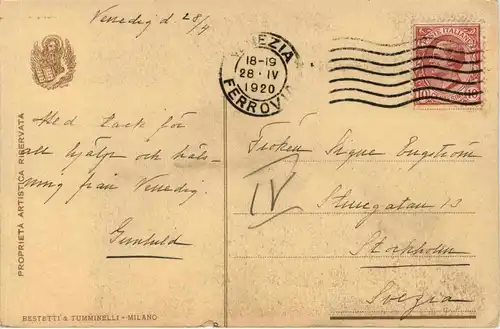 Venedig d. 28/4
VENEZIA
18-19
28·IV
1920
FERROVIA
POSTE ITALIANE
10
Med tack för
all hjälp och häls-
ning från Venedig.
Gunhild
Fröken Signe Engström
IV
13
Stockholm
Svezia
PROPRIETÀ ARTISTICA RISERVATA
BESTETTI & TUMMINELLI - MILANO